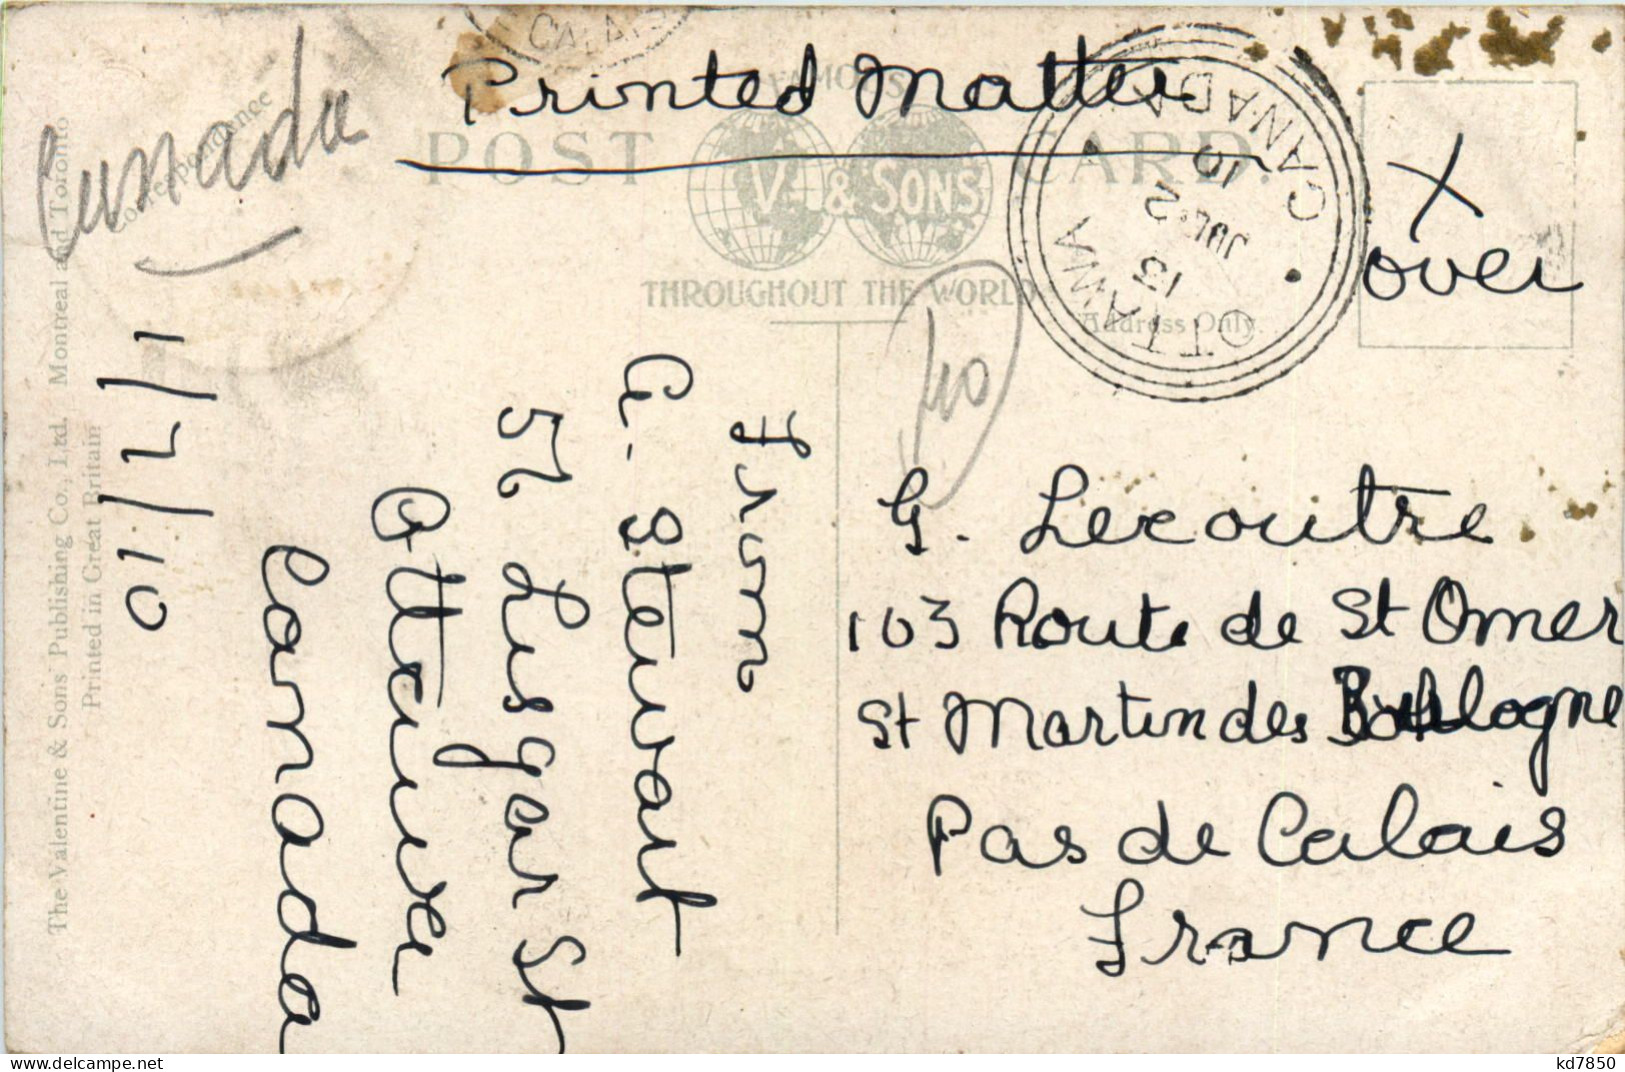 CALAIS
Printed Matter
FAMOUS
POST CARD.
V. & SONS
THROUGHOUT THE WORLD
Address Only.
OTTAWA CANADA
13
JUL 2
10
X
over
Canada
Correspondence
40
1/7/10
From
G. Stewart
57 Lisgar St
Ottawa
Canada
G. Lecoutre
103 Route de St Omer
St Martin des Boulogne
Pas de Calais
France
The Valentine & Sons' Publishing Co., Ltd. Montreal and Toronto
Printed in Great Britain
delcampe.net
kd7850